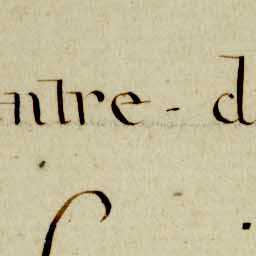 ntre - d